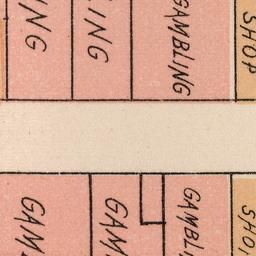 ING
ING
GAMBLING
SHOP
GAM
GAM
GAMBLI
SHO